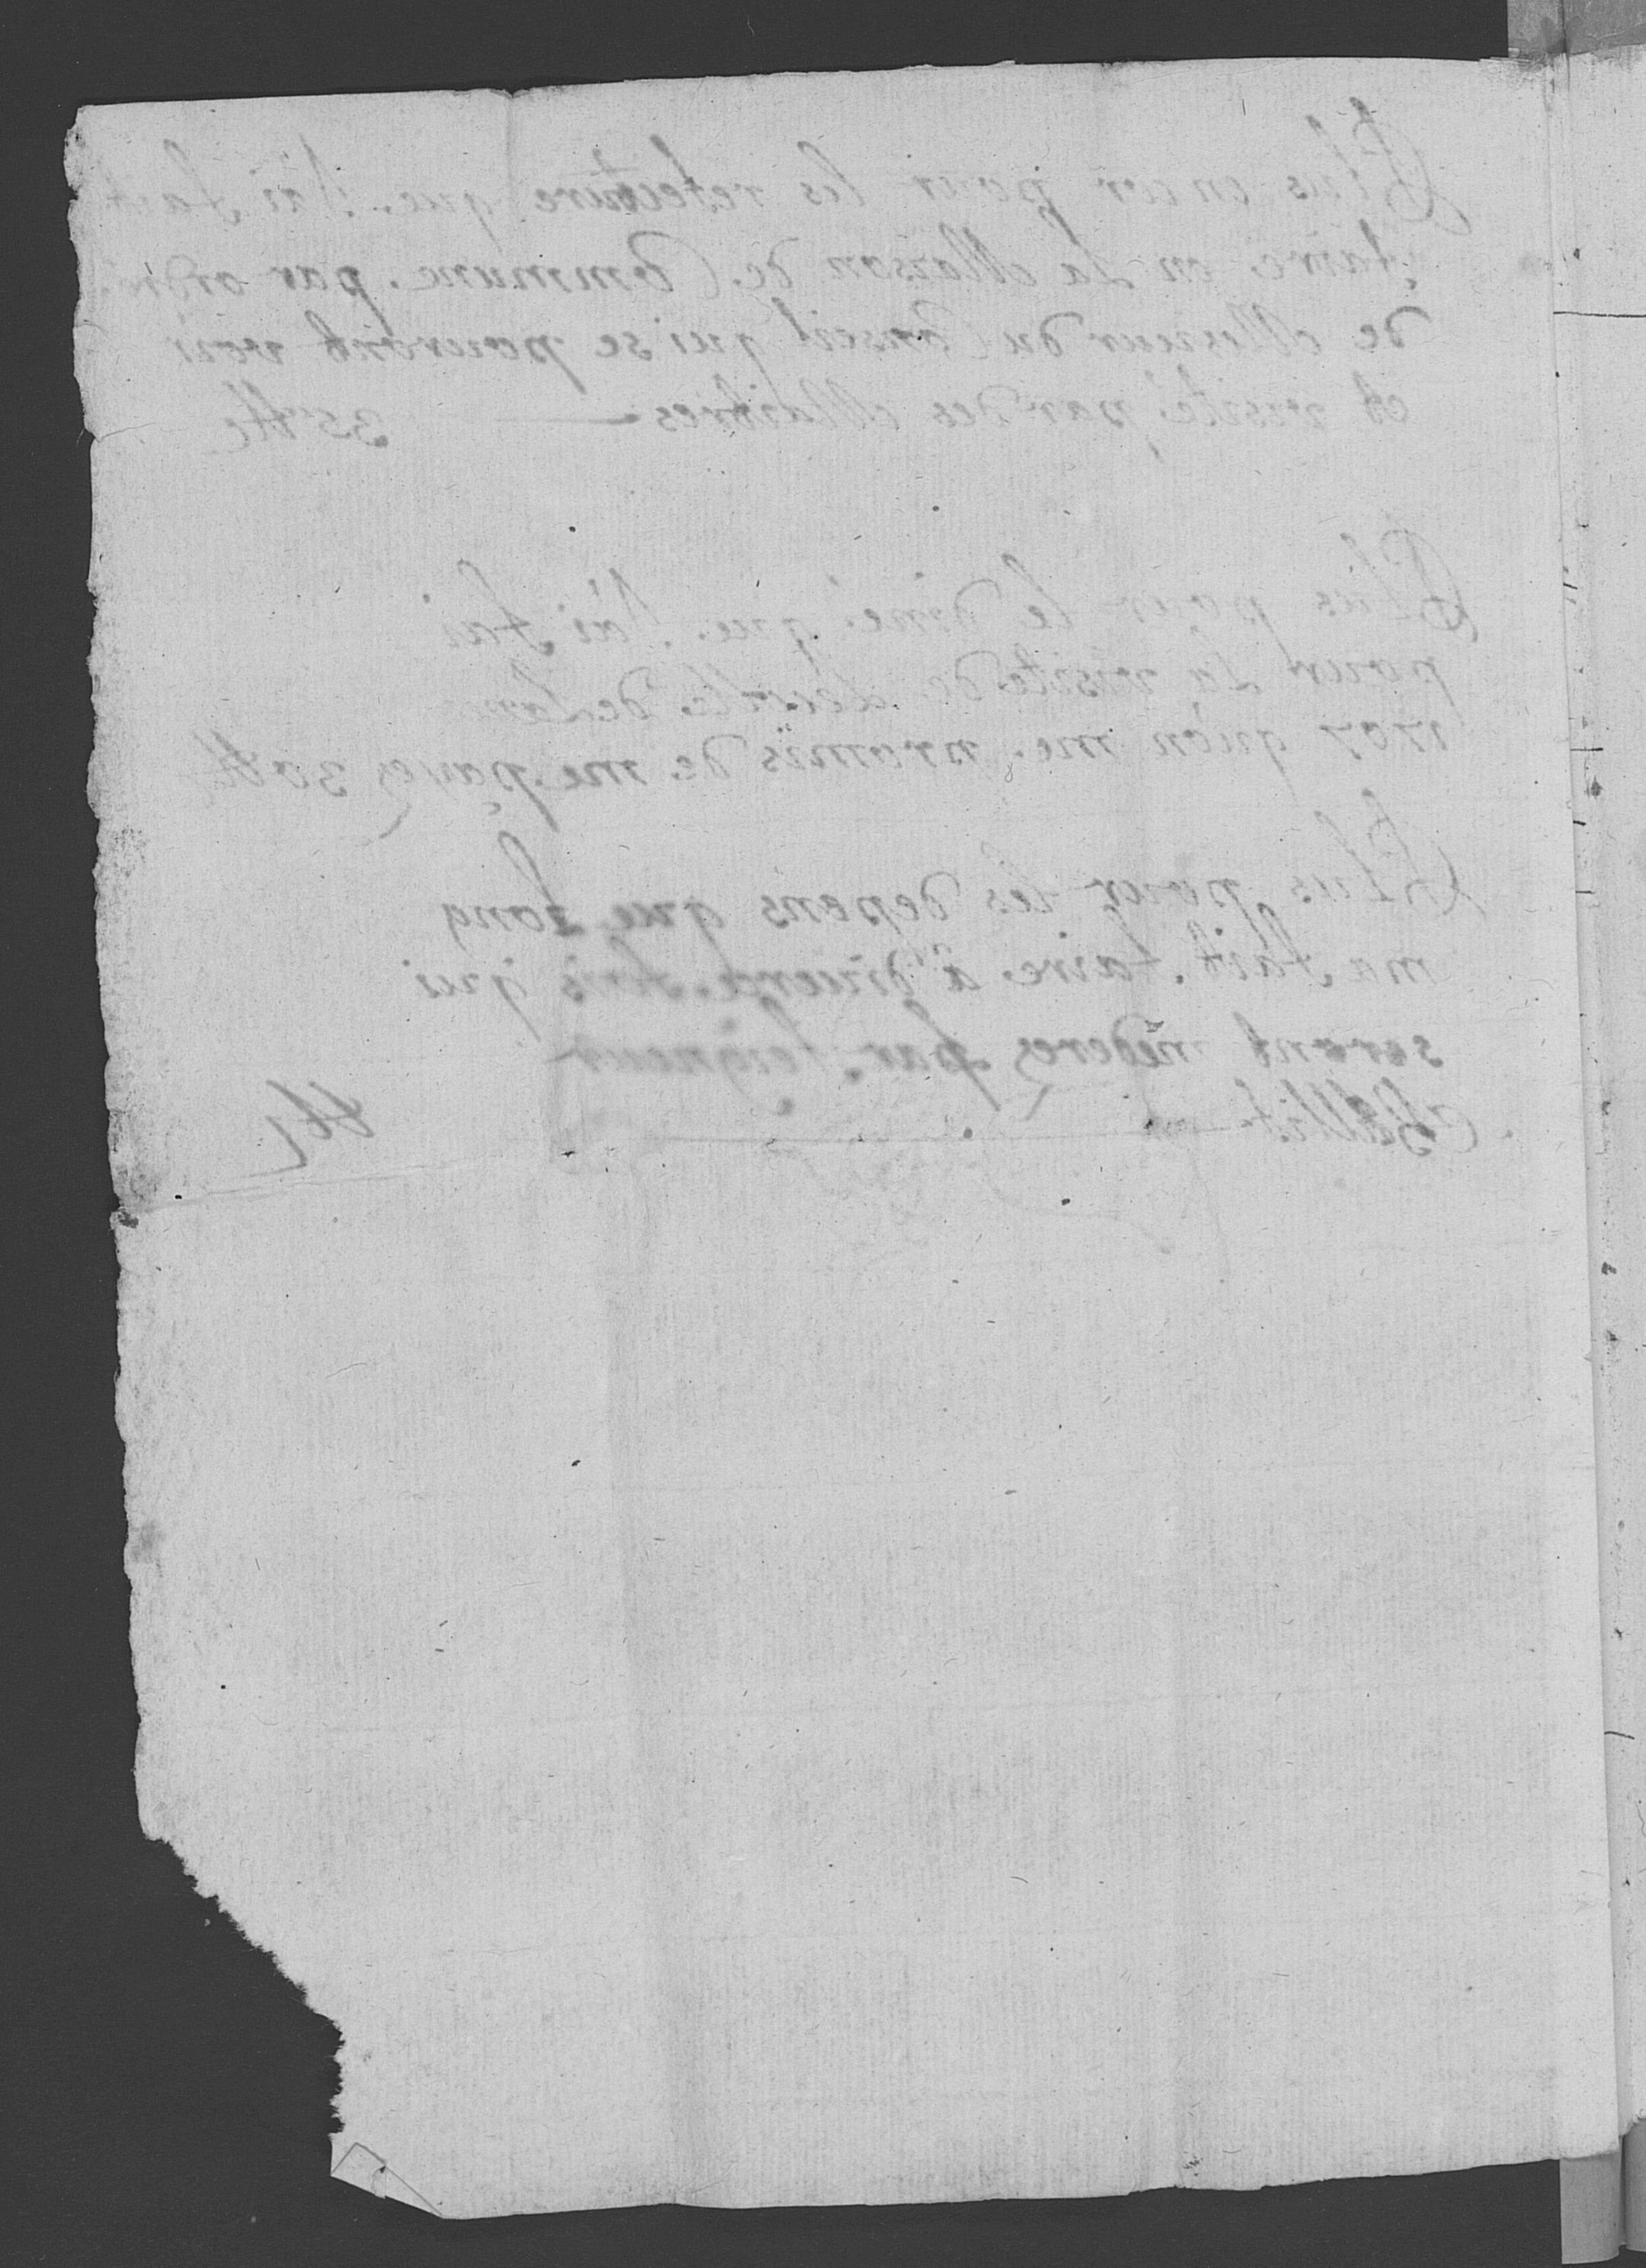 Plus encor pour les refecture que J'ai fait
faire en La Maison de Commune par ordre
de Messieur du Conseil qui se pouront voir
et visité par des Maitres 35 tt
Plus pour le diné que J'ai fai
pour La visite de de Lanné
1707 qu'on me promis de me payez 30 tt
Plus pour les depens que
ma fait faire à fois qui
seront moderez par Seigneur
Baillif tt